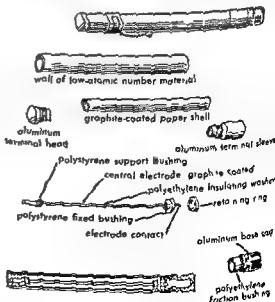 wall of low-atomic number material
graphite-coated paper shell
aluminum
terminal head
aluminum terminal sleeve
polystyrene support bushing
central electrode graphite coated
polyethylene insulating washer
retaining ring
polystyrene fixed bushing
electrode contact
aluminum base cap
polyethylene
friction bushing